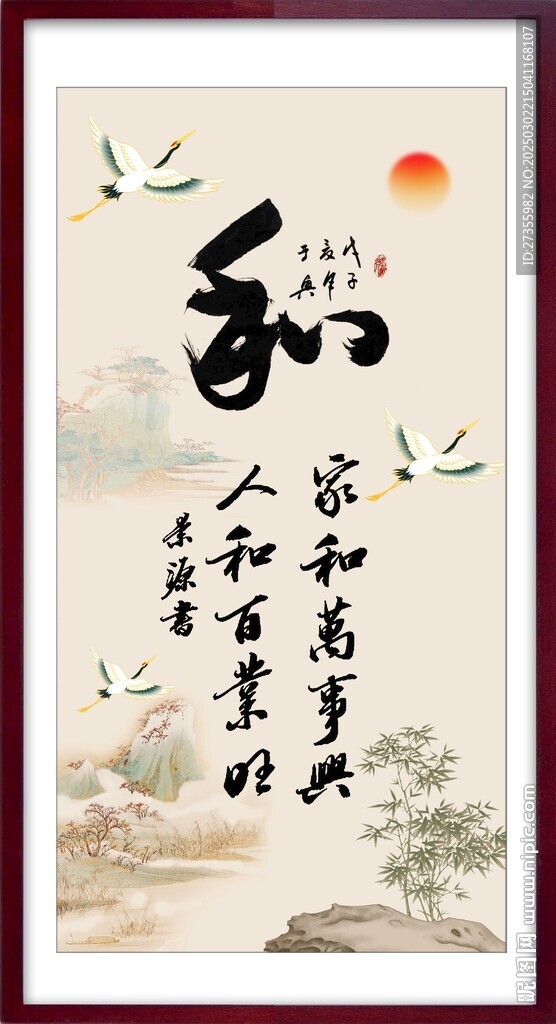 和
戊子
夏年
于奥
家和萬事興
人和百業旺
景源書
ID:27355982 NO:20250302215041168107
昵图网 www.nipic.com